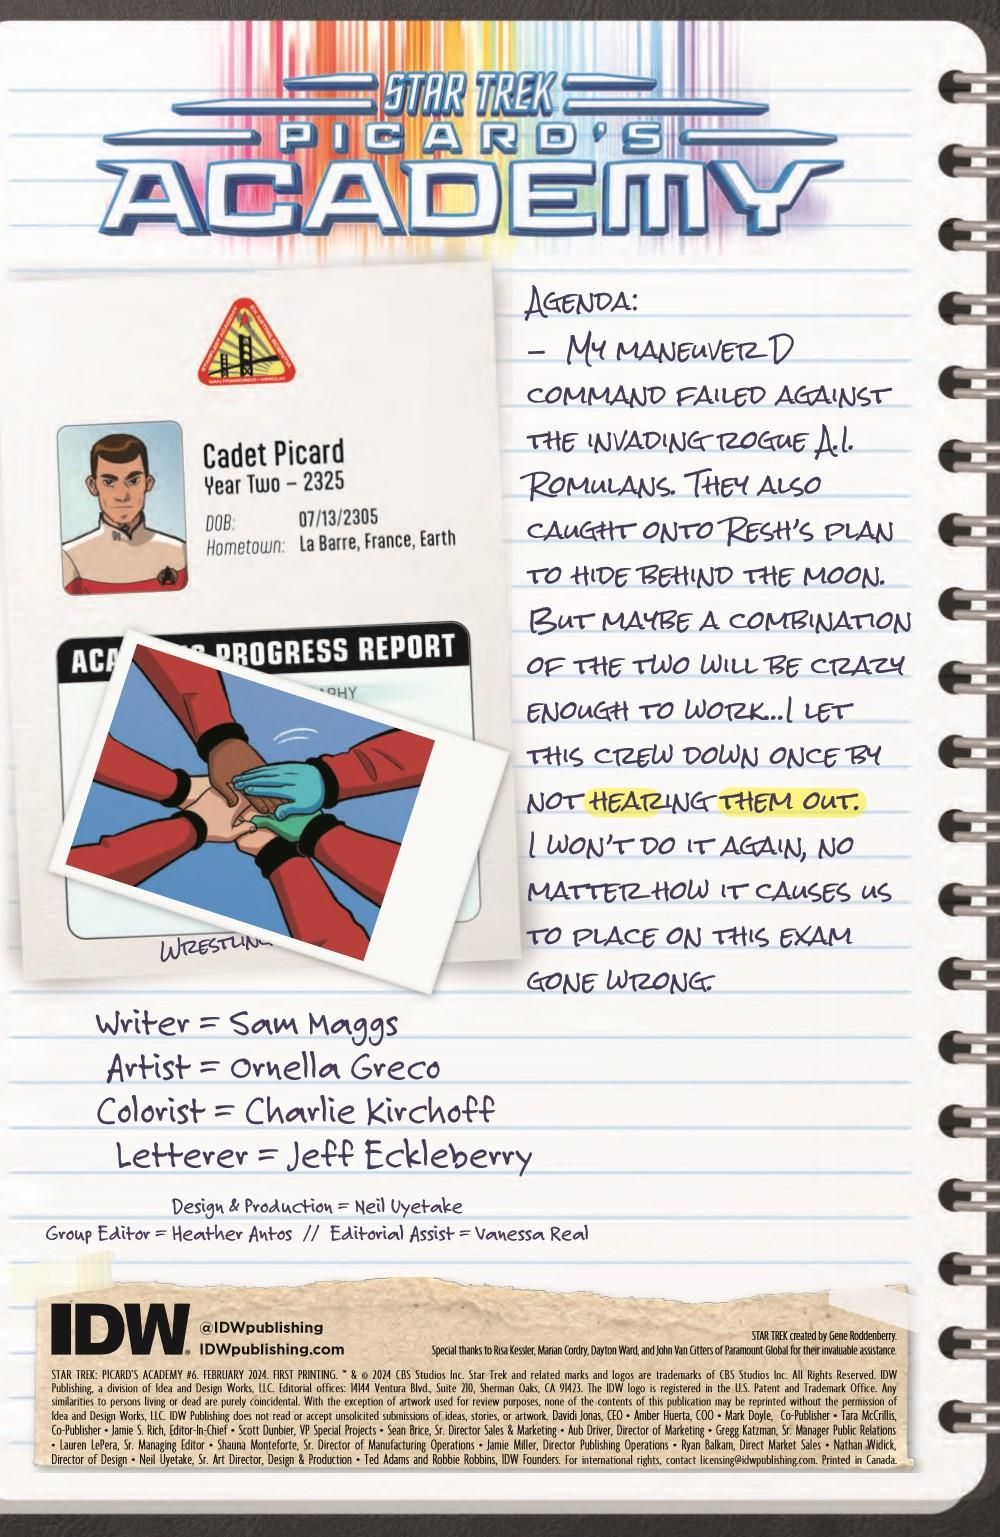 STAR TREK
PICARD'S
ACADEMY
STARFLEET ACADEMY
EX ASTRIS SCIENTIA
SAN FRANCISCO • MMCLXI
Cadet Picard
Year Two – 2325
DOB: 07/13/2305
Hometown: La Barre, France, Earth
PROGRESS REPORT
WRESTLING
AGENDA:
– MY MANEUVER D
COMMAND FAILED AGAINST
THE INVADING ROGUE A.I.
ROMULANS. THEY ALSO
CAUGHT ONTO RESH'S PLAN
TO HIDE BEHIND THE MOON.
BUT MAYBE A COMBINATION
OF THE TWO WILL BE CRAZY
ENOUGH TO WORK...I LET
THIS CREW DOWN ONCE BY
NOT HEARING THEM OUT.
I WON'T DO IT AGAIN, NO
MATTER HOW IT CAUSES US
TO PLACE ON THIS EXAM
GONE WRONG.
Writer = Sam Maggs
Artist = Ornella Greco
Colorist = Charlie Kirchoff
Letterer = Jeff Eckleberry
Design & Production = Neil Uyetake
Group Editor = Heather Antos // Editorial Assist = Vanessa Real
IDW
@IDWpublishing
IDWpublishing.com
STAR TREK created by Gene Roddenberry.
Special thanks to Risa Kessler, Marian Cordry, Dayton Ward, and John Van Citters of Paramount Global for their invaluable assistance.
STAR TREK: PICARD'S ACADEMY #6. FEBRUARY 2024. FIRST PRINTING. ™ & © 2024 CBS Studios Inc. Star Trek and related marks and logos are trademarks of CBS Studios Inc. All Rights Reserved. IDW
Publishing, a division of Idea and Design Works, LLC. Editorial offices: 14144 Ventura Blvd., Suite 210, Sherman Oaks, CA 91423. The IDW logo is registered in the U.S. Patent and Trademark Office. Any
similarities to persons living or dead are purely coincidental. With the exception of artwork used for review purposes, none of the contents of this publication may be reprinted without the permission of
Idea and Design Works, LLC. IDW Publishing does not read or accept unsolicited submissions of ideas, stories, or artwork. Davidi Jonas, CEO • Amber Huerta, COO • Mark Doyle, Co-Publisher • Tara McCrillis,
Co-Publisher • Jamie S. Rich, Editor-In-Chief • Scott Dunbier, VP Special Projects • Sean Brice, Sr. Director Sales & Marketing • Aub Driver, Director of Marketing • Gregg Katzman, Sr. Manager Public Relations
• Lauren LePera, Sr. Managing Editor • Shauna Monteforte, Sr. Director of Manufacturing Operations • Jamie Miller, Director Publishing Operations • Ryan Balkam, Direct Market Sales • Nathan Widick,
Director of Design • Neil Uyetake, Sr. Art Director, Design & Production • Ted Adams and Robbie Robbins, IDW Founders. For international rights, contact licensing@idwpublishing.com. Printed in Canada.